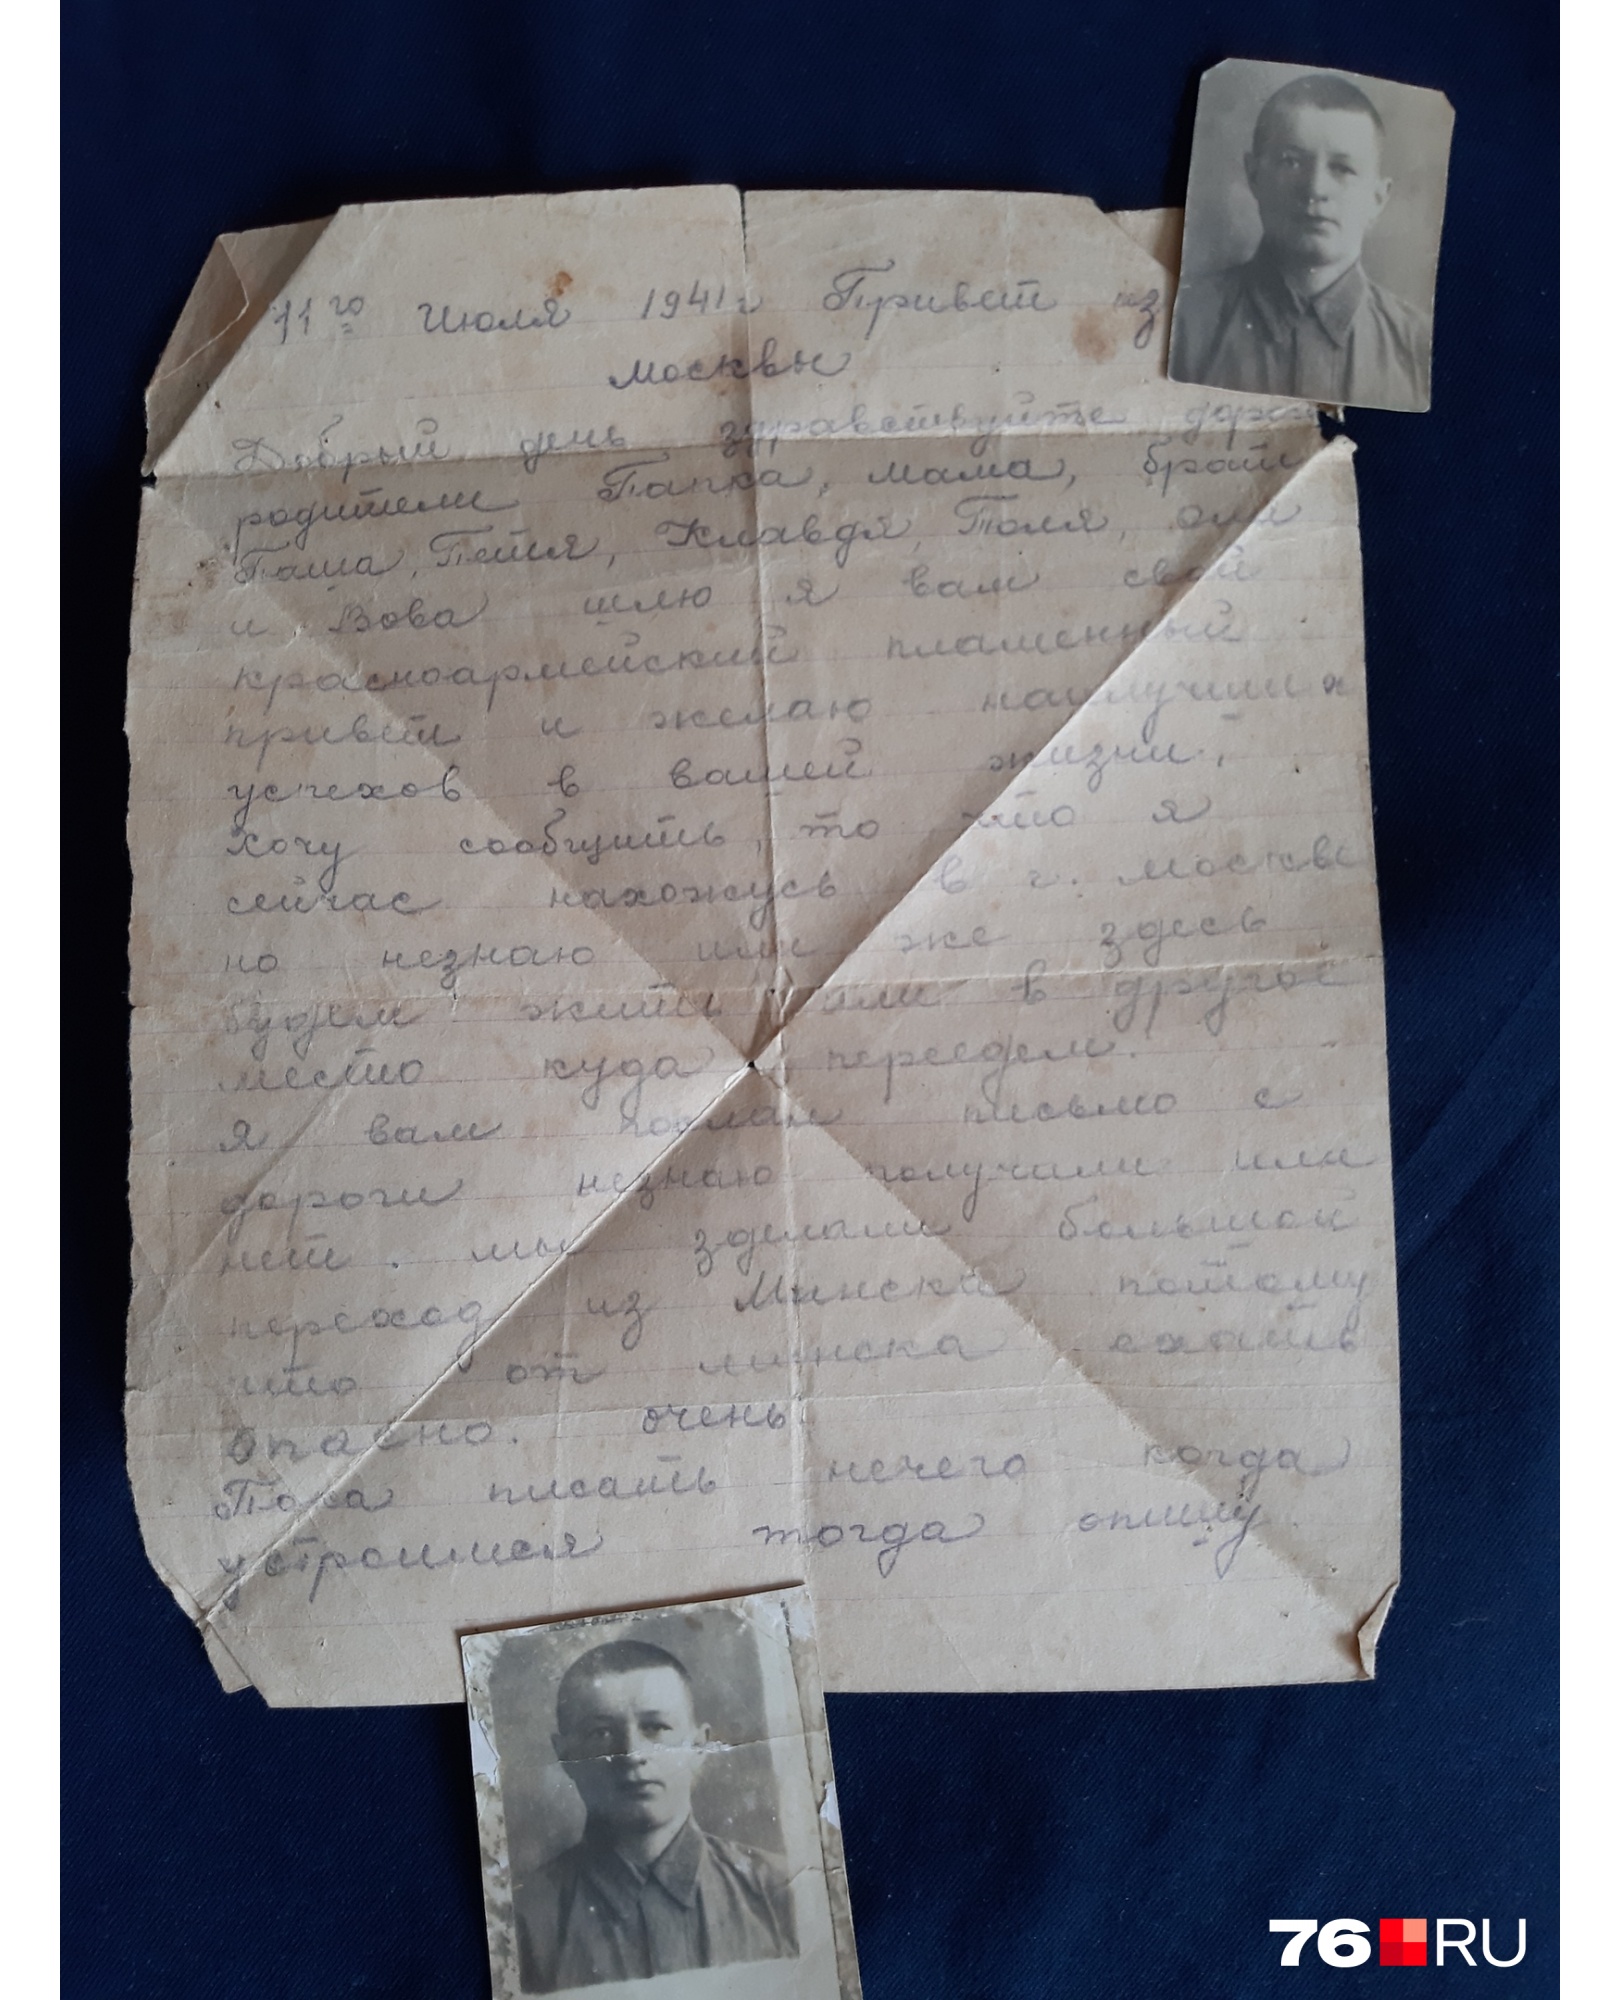 11го Июля 1941г Привет из
Москвы
Добрый день здравствуйте
родители Папка, мама, брат
Паша, Петя, Клавдя, Толя, Оля
и Вова шлю я вам свой
красноармейский пламенный
привет и желаю наилучших
успехов в вашей жизни.
Хочу сообщить, то что я
сейчас нахожусь в г. Москве
но незнаю или же здесь
будем жить или в другое
место куда переедем.
Я вам послал письмо с
дороги незнаю получили или
нет. мы зделали большой
переход из Минска потому
что от минска ехать
опасно. очень
Пока писать нечего когда
устроимся тогда опишу.
76RU